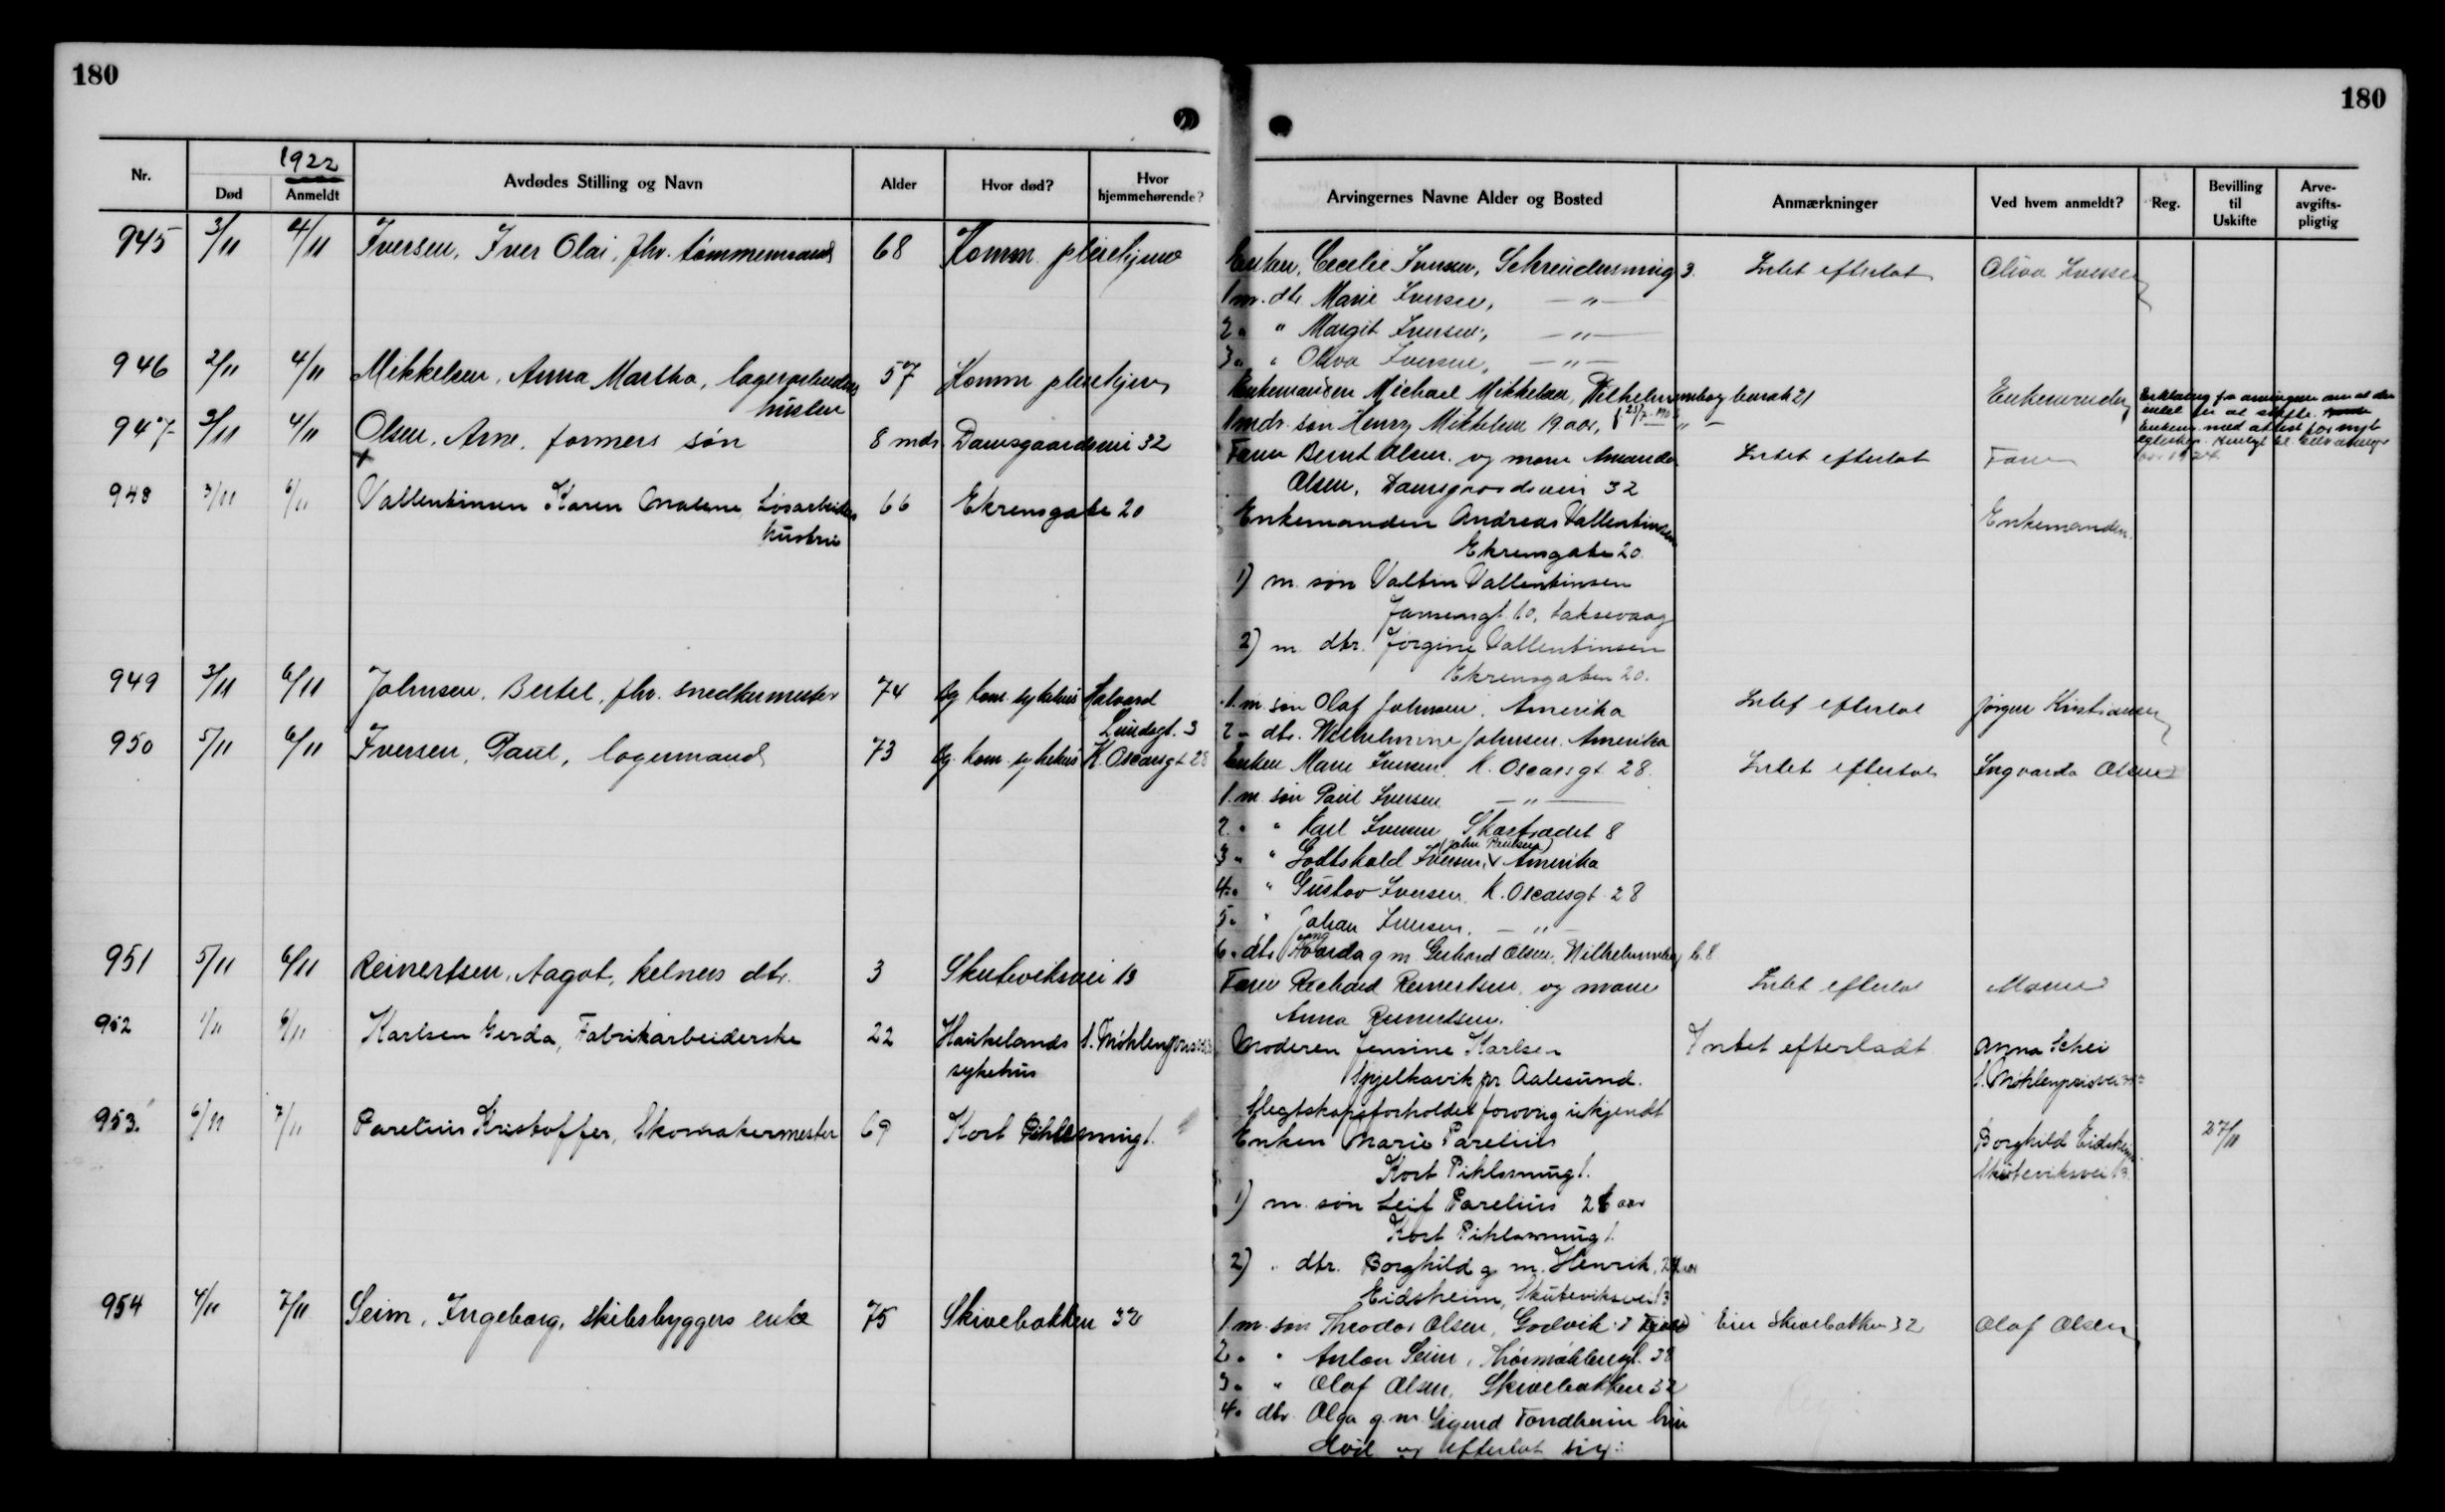 180
180
1922
Nr.
Død
Anmeldt
Avdødes Stilling og Navn
Alder
Hvor død?
Hvor hjemmehørende?
Arvingernes Navne Alder og Bosted
Anmærkninger
Ved hvem anmeldt?
Reg.
Bevilling til Uskifte
Arve-avgifts-pligtig
945 3/11 4/11 Iversen, Iver Olai, fhv. tømmermand 68 Komm. pleiehjem
Enken, Cecilie Iversen, Schreudersmug 3. Intet efterlat Oliva Iversen
1 m. dtr Marie Iversen, — " —
2 " " Margit Iversen, — " —
3 " " Oliva Iversen, — " —
946 2/11 4/11 Mikkelsen, Anna Martha, lagerarbeiders hustru 57 Komm pleiehjem
Enkemanden Michael Mikkelsen, Wilhelmineborg 21 Enkemanden
1 mdr. søn Henry Mikkelsen 19 aar,
947 3/11 4/11 Olsen, Arne, formers søn 8 mdr. Damsgaardsvei 32
Faren Bernt Olsen og moren Amanda Intet efterlat Faren
Olsen, Damsgaardsvei 32
948 3/11 6/11 Vallentinsen Karen Malene Løsarbeiders hustru 66 Ekrensgate 20
Enkemanden Andreas Vallentinsen Enkemanden.
Ekrensgate 20.
1) m. søn Valtin Vallentinsen
Laksevaag
2) m. dtr. Jørgine Vallentinsen
Ekrensgaten 20.
949 3/11 6/11 Johnsen, Bertel, fhv. snedkermester 74 Bg. kom. sykehus Halvard Lindsgt. 3
1. m. søn Olaf Johnsen, Amerika Intet efterlat Jørgen Kristiansen
2 " dtr. Wilhelmine Johnsen, Amerika
950 5/11 6/11 Iversen, Paul, lagermand 73 Bg. kom. sykehus K. Oscarsgt 28
Enken Marie Iversen, K. Oscarsgt 28. Intet efterlat Ingvarda Olsen
1. m. søn Paul Iversen — " —
2. " " Karl Iversen, Skostrædet 8
3 " " Godtskald Iversen, (John Paulsen) Amerika
4. " " Gustav Iversen, K. Oscarsgt 28
5. " " Johan Iversen, — " —
6. " dtr Ingvarda g m. Gerhard Olsen, Wilhelmineborg 68
951 5/11 6/11 Reinertsen, Aagot, kelners dtr. 3 Skuteviksvei 13
Faren Richard Reinertsen og moren Intet efterlat Moren
Anna Reinertsen.
952 1/11 6/11 Karlsen Gerda, Fabrikarbeiderske 22 Haukelands sykehus
Moderen Jensine Karlsen Intet efterladt Anna Schei
Spjelkavik pr Aalesund.
Slegtskapsforholdet forøvrig ukjendt
953. 6/11 7/11 Parelius Kristoffer, Skomakermester 69 Kort Pihlsmug 1.
Enken Marie Parelius Borghild Eidsheim Skuteviksvei 13. 27/11
Kort Pihlsmug 1.
1) m. søn Leif Parelius
Kort Pihlsmug 1.
2) " dtr. Borghild g m. Henrik
Eidsheim, Skuteviksvei 13
954 4/11 7/11 Seim, Ingeborg, skibsbyggers enke 75 Skivebakken 32
1 m. søn Theodor Olsen, Godvik i Eier Skivebakken 32 Olaf Olsen
2 " " Anton Seim, Thormøhlensgt. 38
3 " " Olaf Olsen, Skivebakken 32
4. dtr. Olga g. m. Sigurd Tondheim hun
død og efterlat sig: